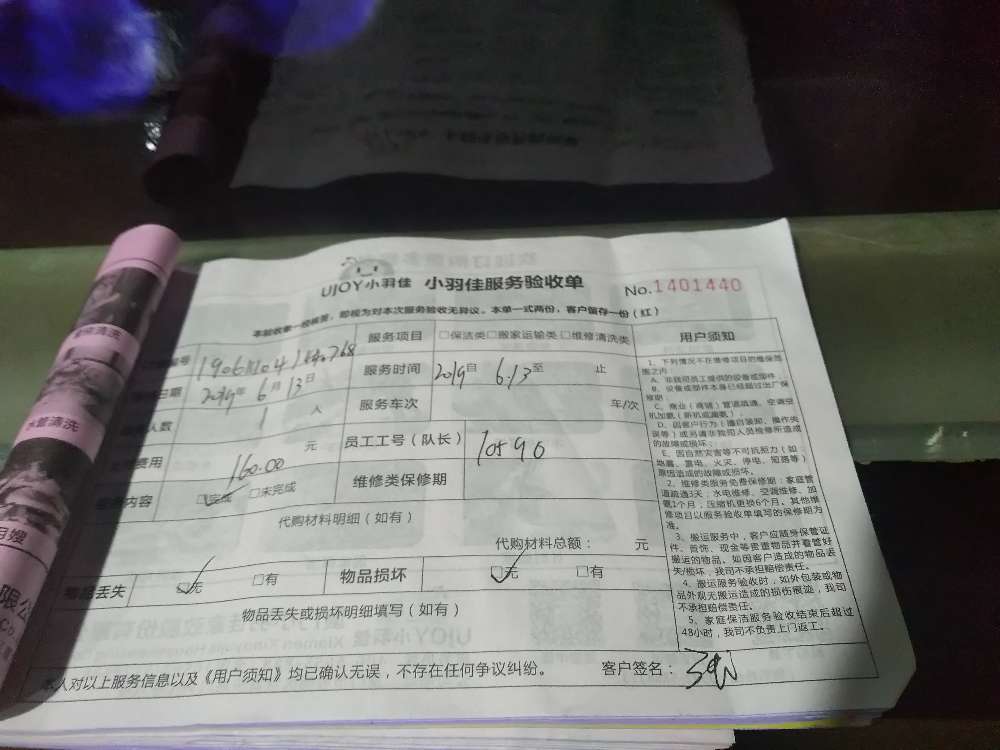 UJOY小羽佳 小羽佳服务验收单
No.1401440
本验收单一经核签，即视为对本次服务验收无异议。本单一式两份，客户留存一份（红）
服务项目 □保洁类□搬家运输类 □维修清洗类 用户须知
服务时间 2019自 6.13至 止
日期 2019年 6月13日
人数 1 人
服务车次 年/次
费用 160.00 元
员工工号（队长） 10590
内容 □完成 □未完成
维修类保修期
代购材料明细（如有）
代购材料总额： 元
物品丢失 □无 □有 物品损坏 □无 □有
物品丢失或损坏明细填写（如有）
本人对以上服务信息以及《用户须知》均已确认无误，不存在任何争议纠纷。 客户签名：
1、下列情况不在维修项目的维保范
围之内：
A、非我司员工提供的设备或部件；
B、设备或部件本身已经超过出厂保
修期；
C、商业（商铺）管道疏通、空调空
机加氨（新机或漏氨）；
D、因客户行为（擅自装卸、操作失
误等）或另请非我司人员检修所造成
的故障或损坏；
E、因自然灾害等不可抗原力（如
地震、雷电、火灾、停电、短路等）
原因造成的故障或损坏。
2、维修类服务免费保修期：家庭管
道疏通3天；水电维修、空调维修、加
氨1个月，压缩机更换6个月。其他维
修项目以服务验收单填写的保修期为
准。
3、搬运服务中，客户应随身保管证
件、首饰、现金等贵重物品并看管好
搬运的物品。如因客户造成的物品丢
失/损坏，我司不承担赔偿责任。
4、搬运服务验收时，如外包装或物
品外观无搬运造成的损伤痕迹，我司
不承担赔偿责任。
5、家庭保洁服务验收结束后超过
48小时，我司不负责上门返工。
管清洗
月嫂
限公
Co.